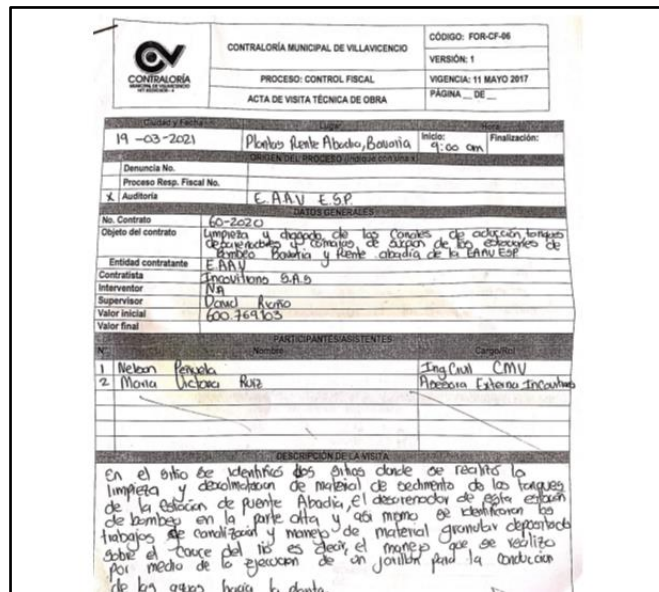 CONTRALORÍA
MUNICIPAL DE VILLAVICENCIO
CONTRALORÍA MUNICIPAL DE VILLAVICENCIO
CÓDIGO: FOR-CF-06
VERSIÓN: 1
PROCESO: CONTROL FISCAL
VIGENCIA: 11 MAYO 2017
ACTA DE VISITA TÉCNICA DE OBRA
PÁGINA __ DE __
Ciudad y Fecha
Lugar
Hora
19 -03-2021
Plantas Puente Abadia, Bavaria
Inicio:
9:00 am
Finalización:
ORIGEN DEL PROCESO (indique con una x)
Denuncia No.
Proceso Resp. Fiscal No.
X Auditoría
E.A.A.V E.S.P.
DATOS GENERALES
No. Contrato
60-2020
Objeto del contrato
Limpieza y dragado de los canales de aducción, tanques
desarenadores y de las estaciones de
Bombeo Bavaria y Puente abadia de la EAAV ESP
Entidad contratante
E.AAV
Contratista
S.A.S
Interventor
NA
Supervisor
David
Valor inicial
600.769.103
Valor final
PARTICIPANTES/ASISTENTES
N°
Nombre
Cargo/Rol
1 Nelson Peñuela
Ing Civil CMV
2 Maria Victoria Ruiz
Asesora Externa
DESCRIPCIÓN DE LA VISITA
En el sitio se identificó dos sitios donde se realizó la
limpieza y descolmatacion de material de sedimento de los tanques
de la estacion de puente Abadia, el desarenador de esta estación
de bombeo en la parte alta y asi mismo se identificaron los
trabajos de canalización y manejo de material granular depositado
sobre el cauce del rio es decir, el manejo que se realizo
por medio de la ejecucion de un jarillon para la conducción
de las aguas hacia la planta.